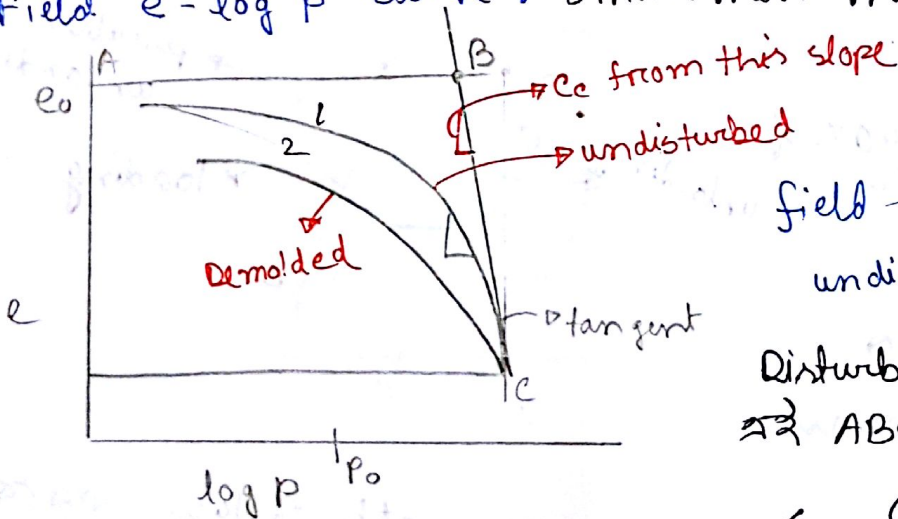 Field e - log p
A
B
e₀
Cc from this slope
1
undisturbed
2
field -
Demolded
undi
e
tangent
Disturb
C
এই AB
log p
P₀